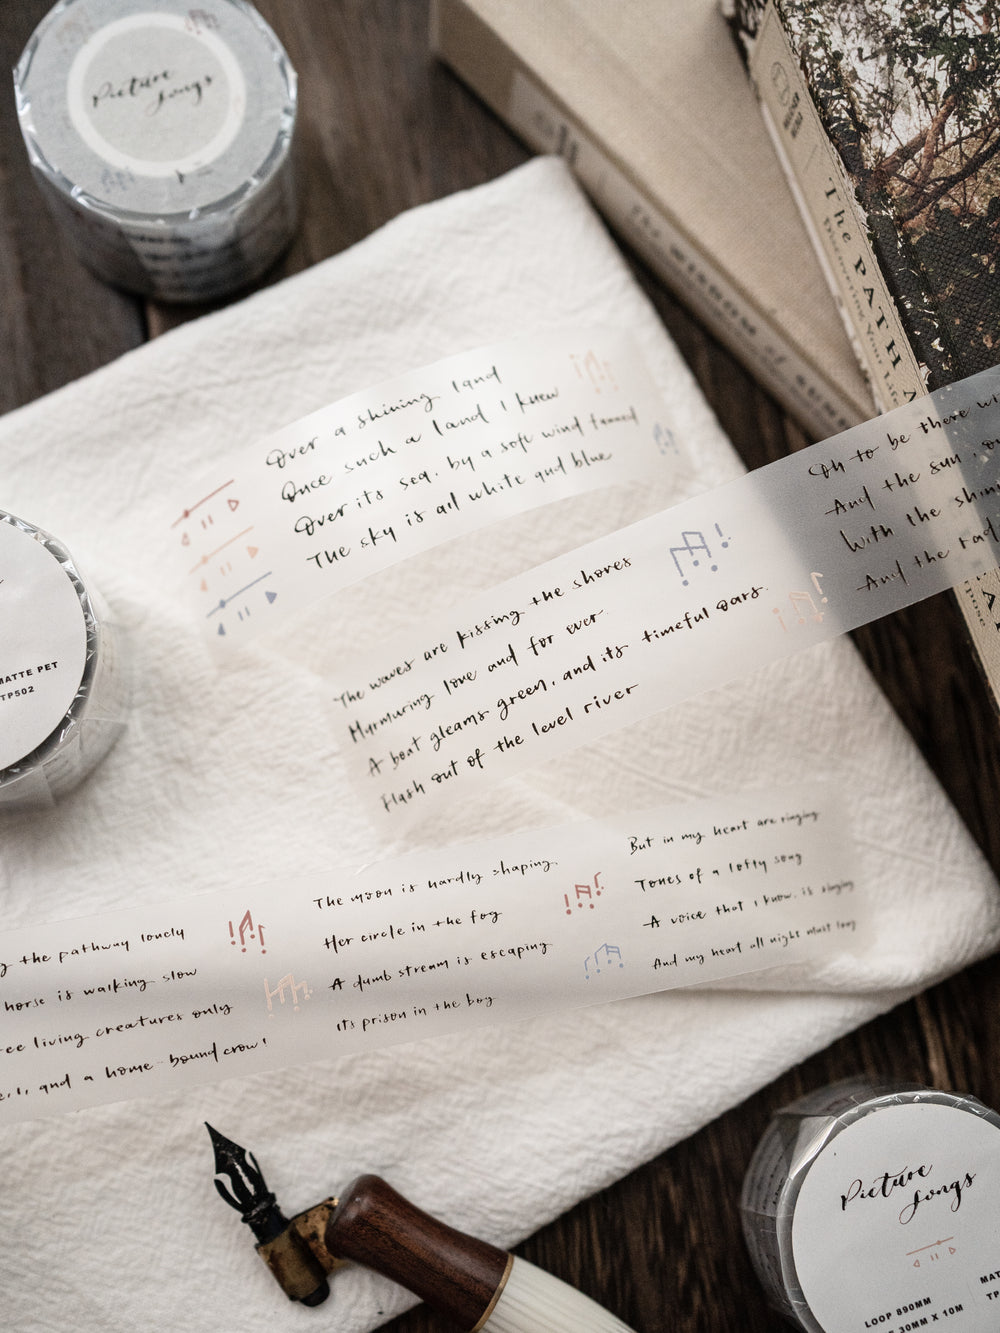 Picture
Songs
The WISDOM of
The PATH
Discovering Your Life
Over a shining land
Once such a land I knew
Over its sea, by a soft wind fanned
The sky is all white and blue
Oh to be there
And the sun,
With the
And the
The waves are kissing the shores
Murmuring love and for ever.
A boat gleams green, and its timeful oars.
Flash out of the level river
MATTE PET
TP502
the pathway lonely
horse is walking slow
living creatures only
and a home-bound crow!
The moon is hardly shaping
Her circle in the fog
A dumb stream is escaping
Its prison in the bog
But in my heart are ringing
Tones of a lofty song
A voice that I know, is singing
And my heart all night must long
Picture
Songs
LOOP 890MM
30MM X 10M
MAT
TP